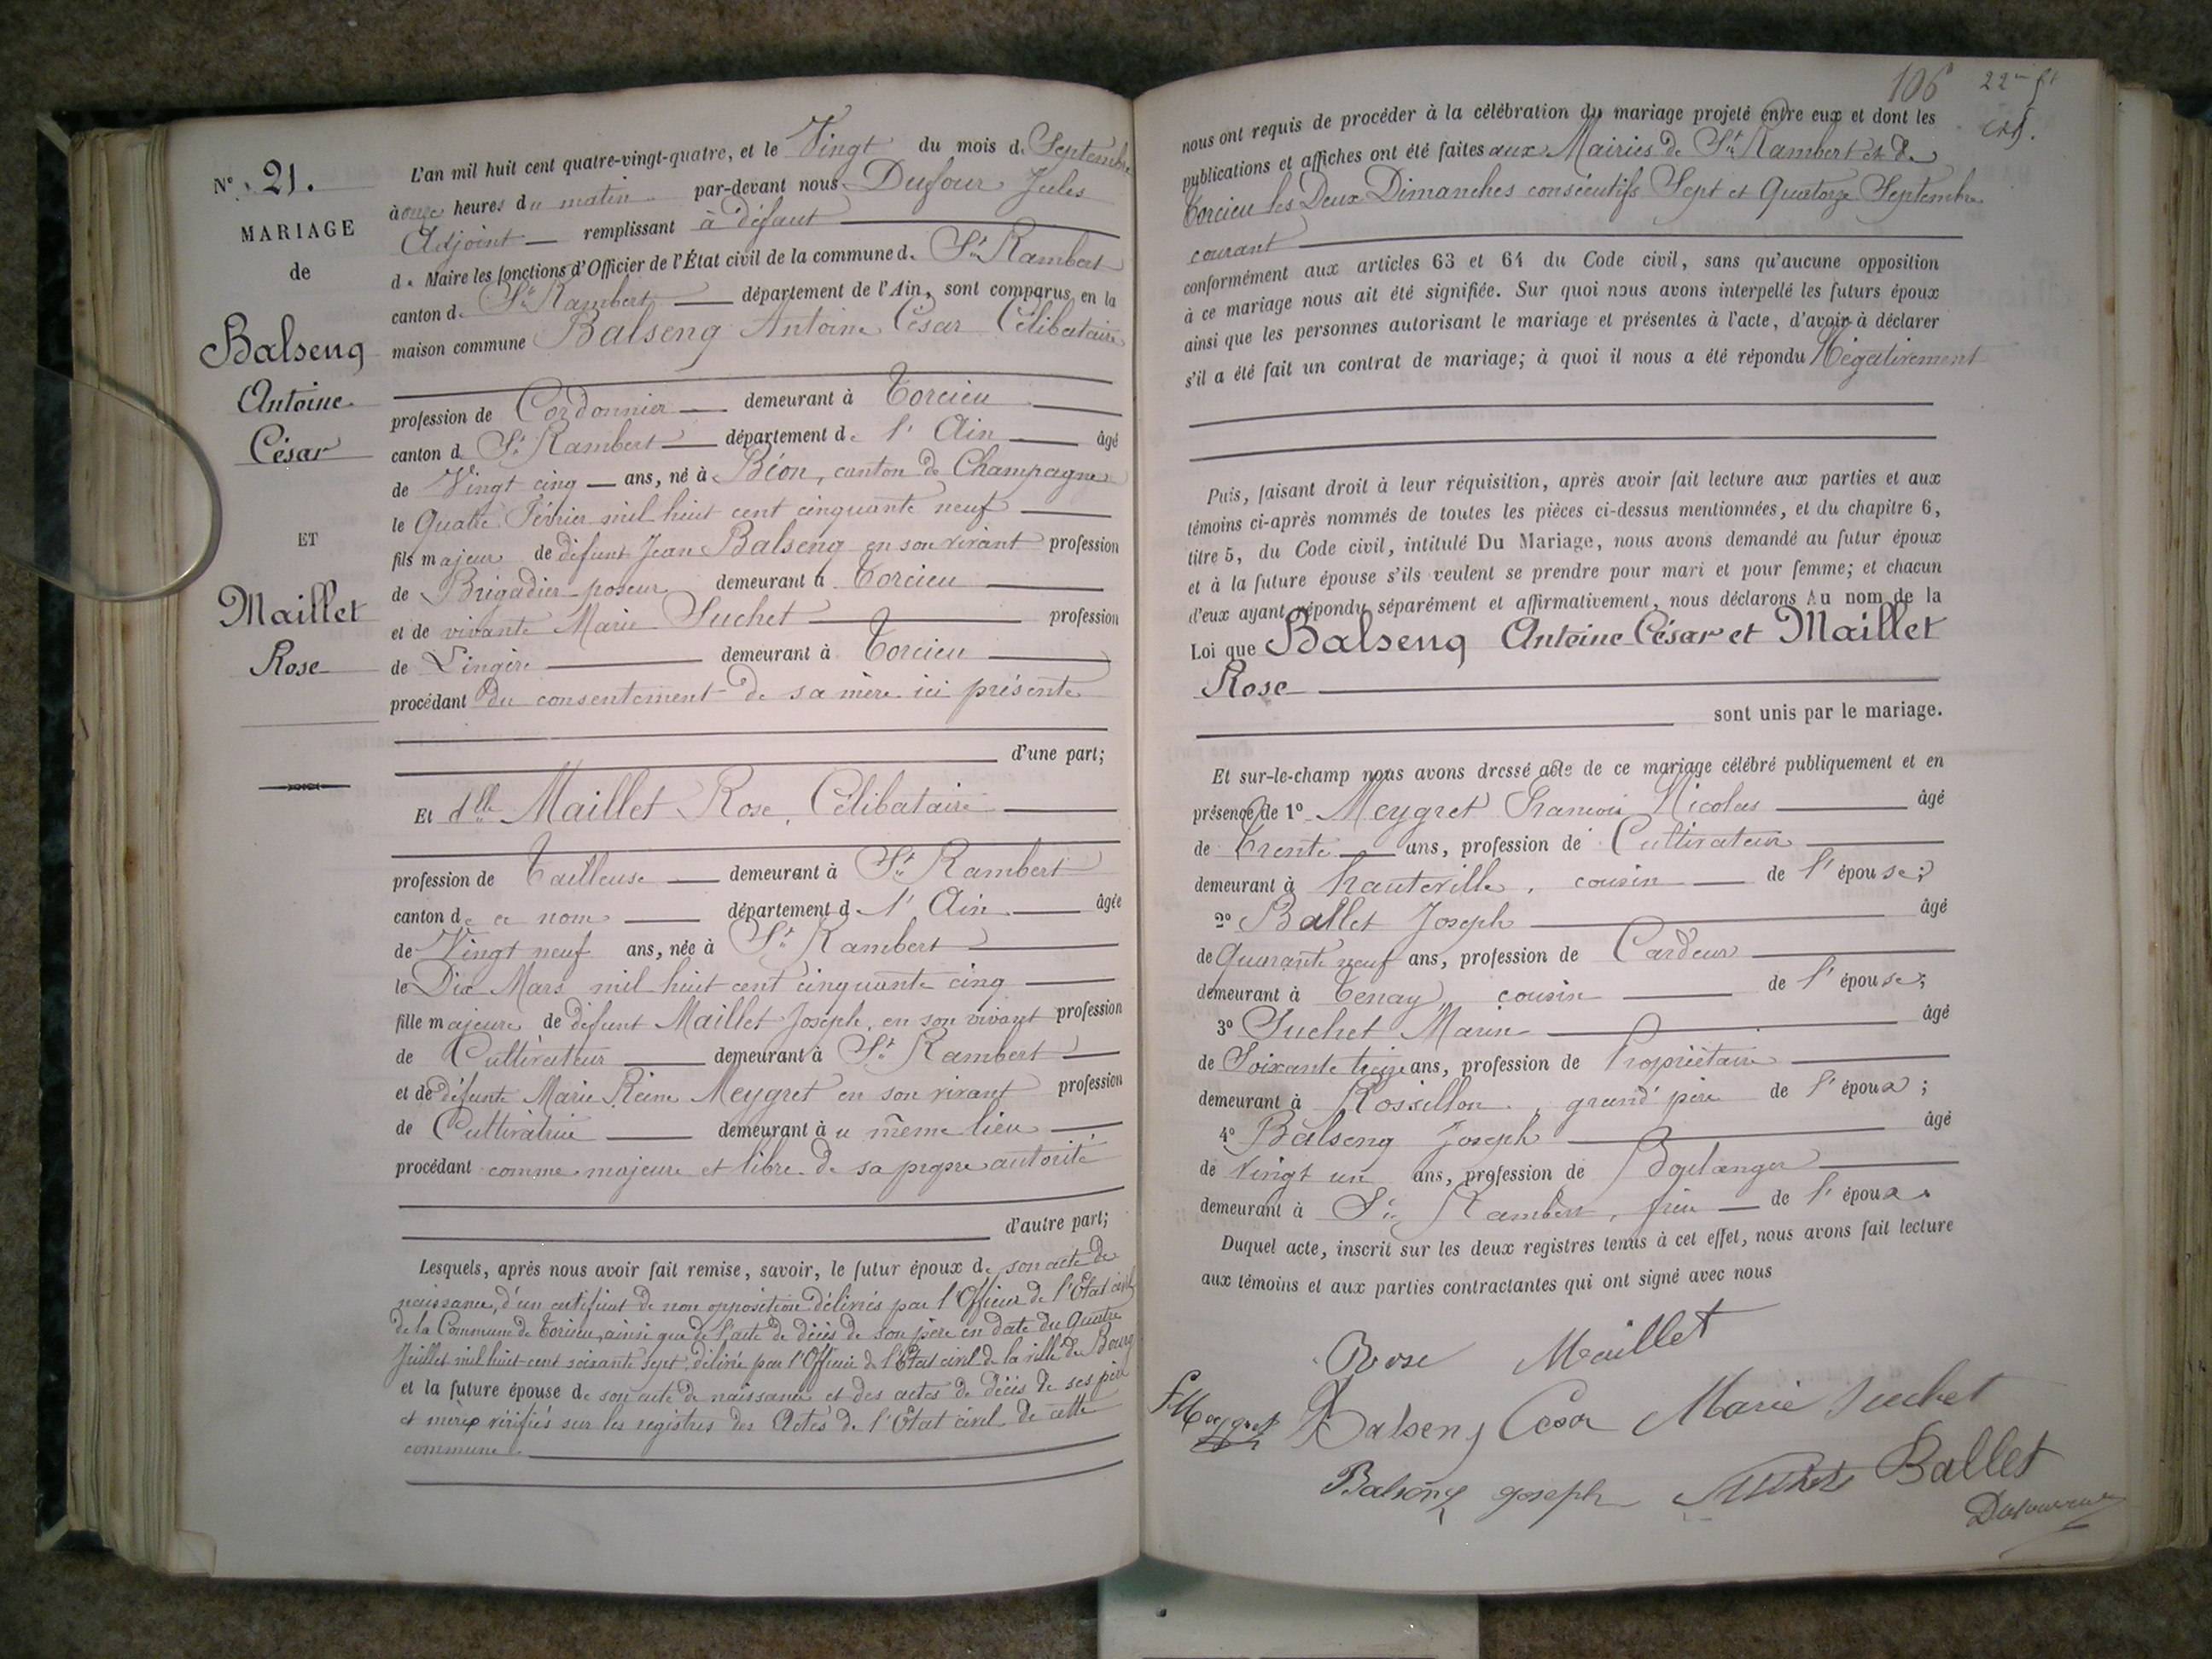 N° 21.
MARIAGE
de
Balseng
Antoine
César
ET
Maillet
Rose
L'an mil huit cent quatre-vingt-quatre, et le Vingt du mois de Septembre
à onze heures du matin par-devant nous Dufour Jules
Adjoint remplissant à défaut
de Maire les fonctions d'Officier de l'État civil de la commune de St Rambert
canton de St Rambert département de l'Ain, sont comparus en la
maison commune Balseng Antoine César Célibataire
profession de Cordonnier demeurant à Torcieu
canton de St Rambert département de l'Ain âgé
de Vingt cinq ans, né à Béon, canton de Champagne
le Quatre Février mil huit cent cinquante neuf
fils majeur de défunt Jean Balseng en son vivant profession
de Brigadier-poseur demeurant à Torcieu
et de vivante Marie Suchet profession
de Lingère demeurant à Torcieu
procédant du consentement de sa mère ici présente
d'une part;
Et dlle Maillet Rose, Célibataire
profession de Tailleuse demeurant à St Rambert
canton de ce nom département de l'Ain âgée
de Vingt neuf ans, née à St Rambert
le Dix Mars mil huit cent cinquante cinq
fille majeure de défunt Maillet Joseph, en son vivant profession
de Cultivateur demeurant à St Rambert
et de défunte Marie Reine Meygret en son vivant profession
de Cultivatrice demeurant à u même lieu
procédant comme majeure et libre de sa propre autorité
d'autre part;
Lesquels, après nous avoir fait remise, savoir, le futur époux de son acte de
naissance, d'un certificat de non opposition délivrés par l'Officier de l'Etat civil
de la Commune de Torcieu, ainsi que de l'acte de décès de son père en date du Quatre
Juillet mil huit cent soixante sept, délivré par l'Officier de l'Etat civil de la ville de Bourg
et la future épouse de son acte de naissance et des actes de décès de ses père
et mère vérifiés sur les registres des Actes de l'Etat civil de cette
commune.
106
nous ont requis de procéder à la célébration du mariage projeté entre eux et dont les
publications et affiches ont été faites aux Mairies de St Rambert et de
Torcieu les Deux Dimanches consécutifs Sept et Quatorze Septembre
courant
conformément aux articles 63 et 64 du Code civil, sans qu'aucune opposition
à ce mariage nous ait été signifiée. Sur quoi nous avons interpellé les futurs époux
ainsi que les personnes autorisant le mariage et présentes à l'acte, d'avoir à déclarer
s'il a été fait un contrat de mariage; à quoi il nous a été répondu Négativement
Puis, faisant droit à leur réquisition, après avoir fait lecture aux parties et aux
témoins ci-après nommés de toutes les pièces ci-dessus mentionnées, et du chapitre 6,
titre 5, du Code civil, intitulé Du Mariage, nous avons demandé au futur époux
et à la future épouse s'ils veulent se prendre pour mari et pour femme; et chacun
d'eux ayant répondu séparément et affirmativement, nous déclarons Au nom de la
Loi que Balseng Antoine César et Maillet
Rose
sont unis par le mariage.
Et sur-le-champ nous avons dressé acte de ce mariage célébré publiquement et en
présence de 1° Meygret Francois Nicolas âgé
de Trente ans, profession de Cultivateur
demeurant à hauteville, cousin de l'épouse;
2° Ballet Joseph âgé
de Quarante neuf ans, profession de Cardeur
demeurant à Tenay, cousin de l'épouse;
3° Suchet Marin âgé
de Soixante treize ans, profession de Propriétaire
demeurant à Rossillon, grand père de l'époux;
4° Balseng Joseph âgé
de Vingt un ans, profession de Boulanger
demeurant à St Rambert, frère de l'époux.
Duquel acte, inscrit sur les deux registres tenus à cet effet, nous avons fait lecture
aux témoins et aux parties contractantes qui ont signé avec nous
Rose Maillet
F Meygret Balseng Cesar Marie Suchet
Balseng joseph Ballet